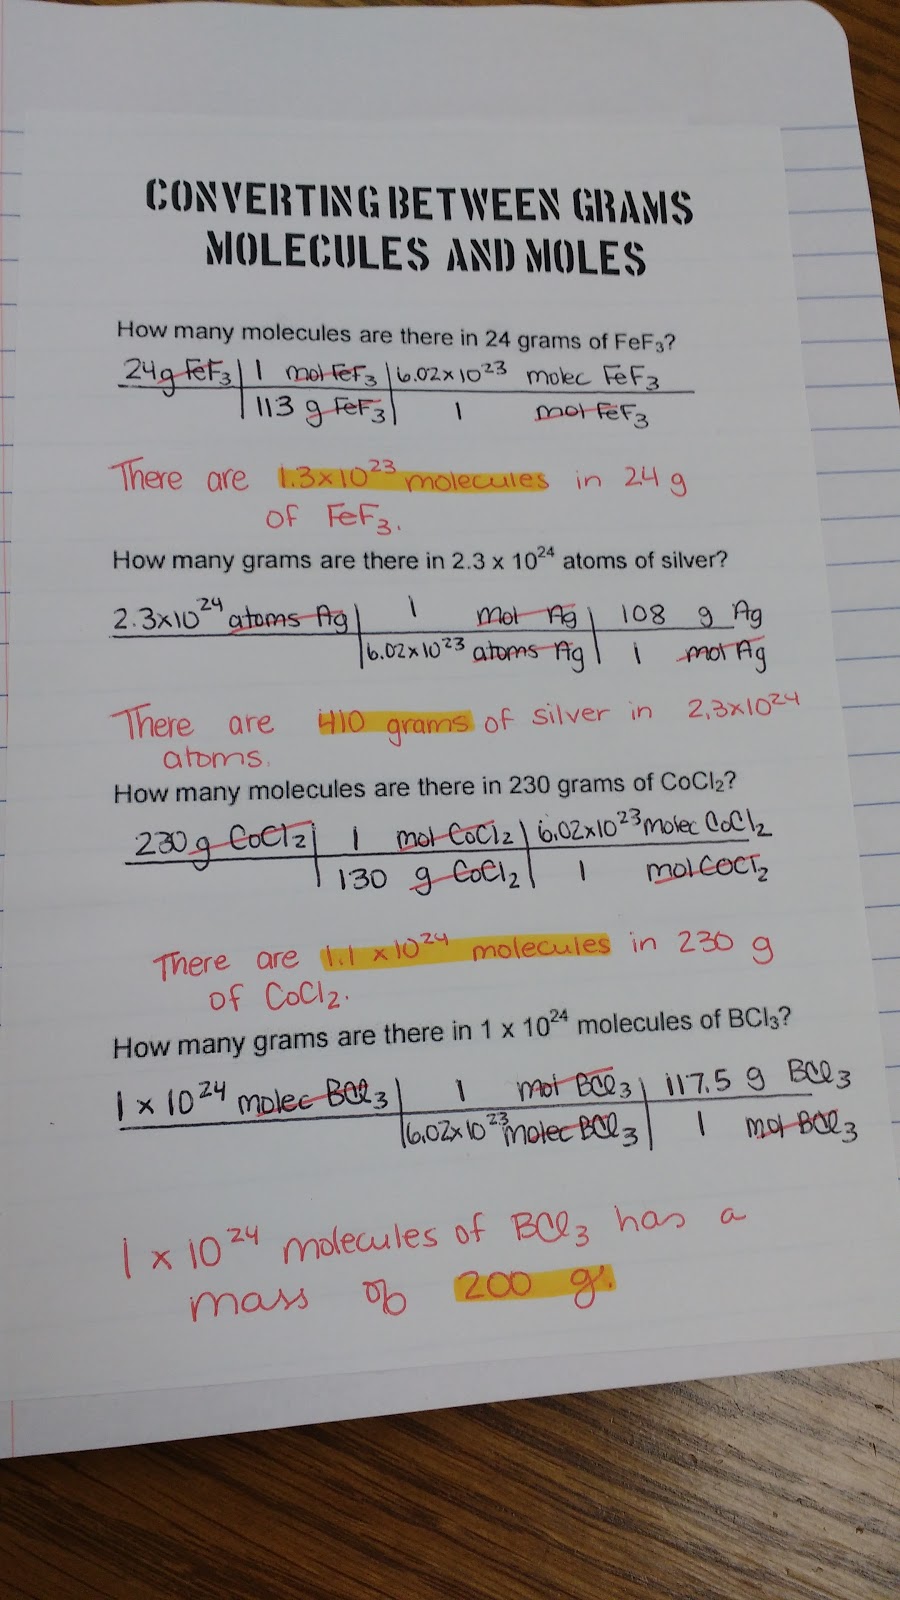 CONVERTING BETWEEN GRAMS
MOLECULES AND MOLES
How many molecules are there in 24 grams of FeF₃?
24g FeF₃ | 1 mol FeF₃ | 6.02x10²³ molec FeF₃
113 g FeF₃ | 1 mol FeF₃
There are 1.3x10²³ molecules in 24 g
of FeF₃.
How many grams are there in 2.3 x 10²⁴ atoms of silver?
2.3x10²⁴ atoms Ag | 1 mol Ag | 108 g Ag
6.02x10²³ atoms Ag | 1 mol Ag
There are 410 grams of silver in 2.3x10²⁴
atoms.
How many molecules are there in 230 grams of CoCl₂?
230g CoCl₂ | 1 mol CoCl₂ | 6.02x10²³ molec CoCl₂
130 g CoCl₂ | 1 mol COCl₂
There are 1.1 x10²⁴ molecules in 230 g
of CoCl₂.
How many grams are there in 1 x 10²⁴ molecules of BCl₃?
1 x 10²⁴ molec BCl₃ | 1 mol BCl₃ | 117.5 g BCl₃
6.02x10²³ molec BCl₃ | 1 mol BCl₃
1 x 10²⁴ molecules of BCl₃ has a
mass of 200 g.